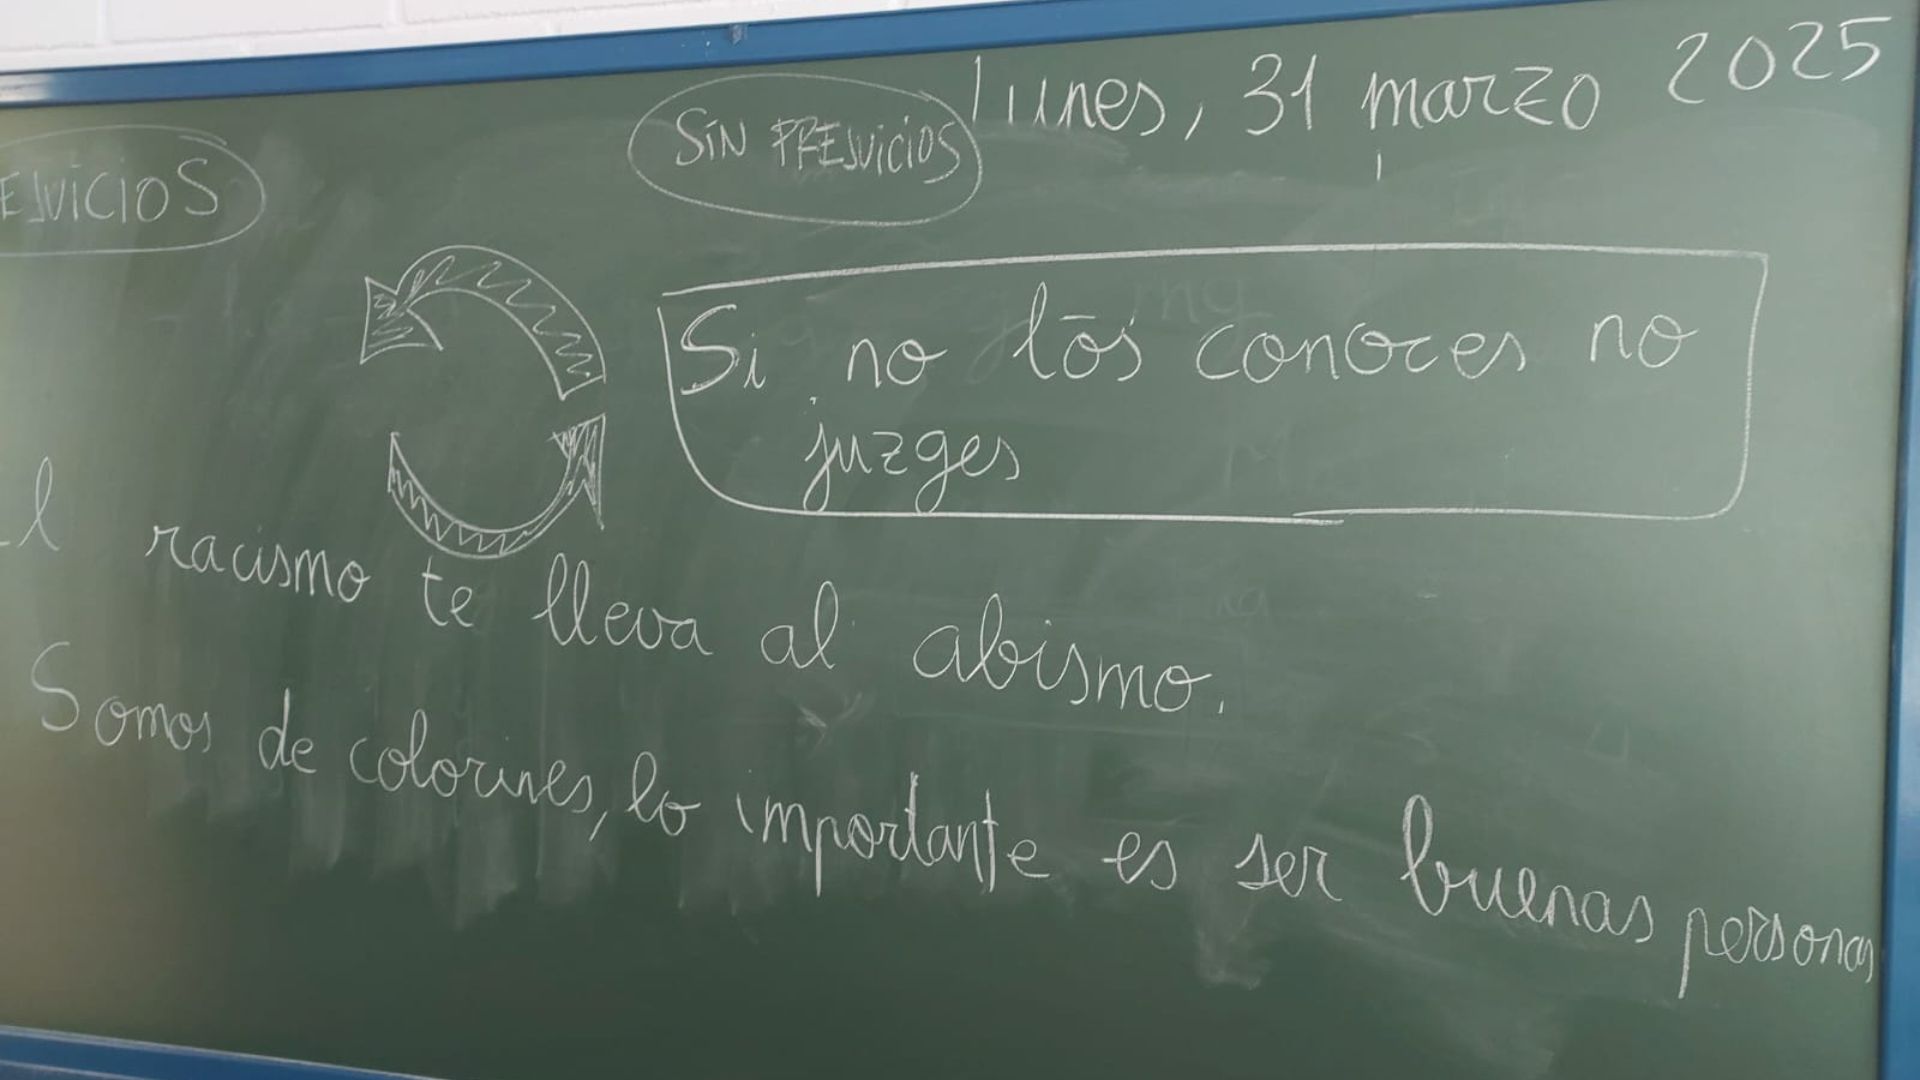 lunes, 31 marzo 2025
SIN PREJUICIOS
EJUICIOS
Si no los conoces no
juzges
El racismo te lleva al abismo.
Somos de colorines, lo importante es ser buenas personas